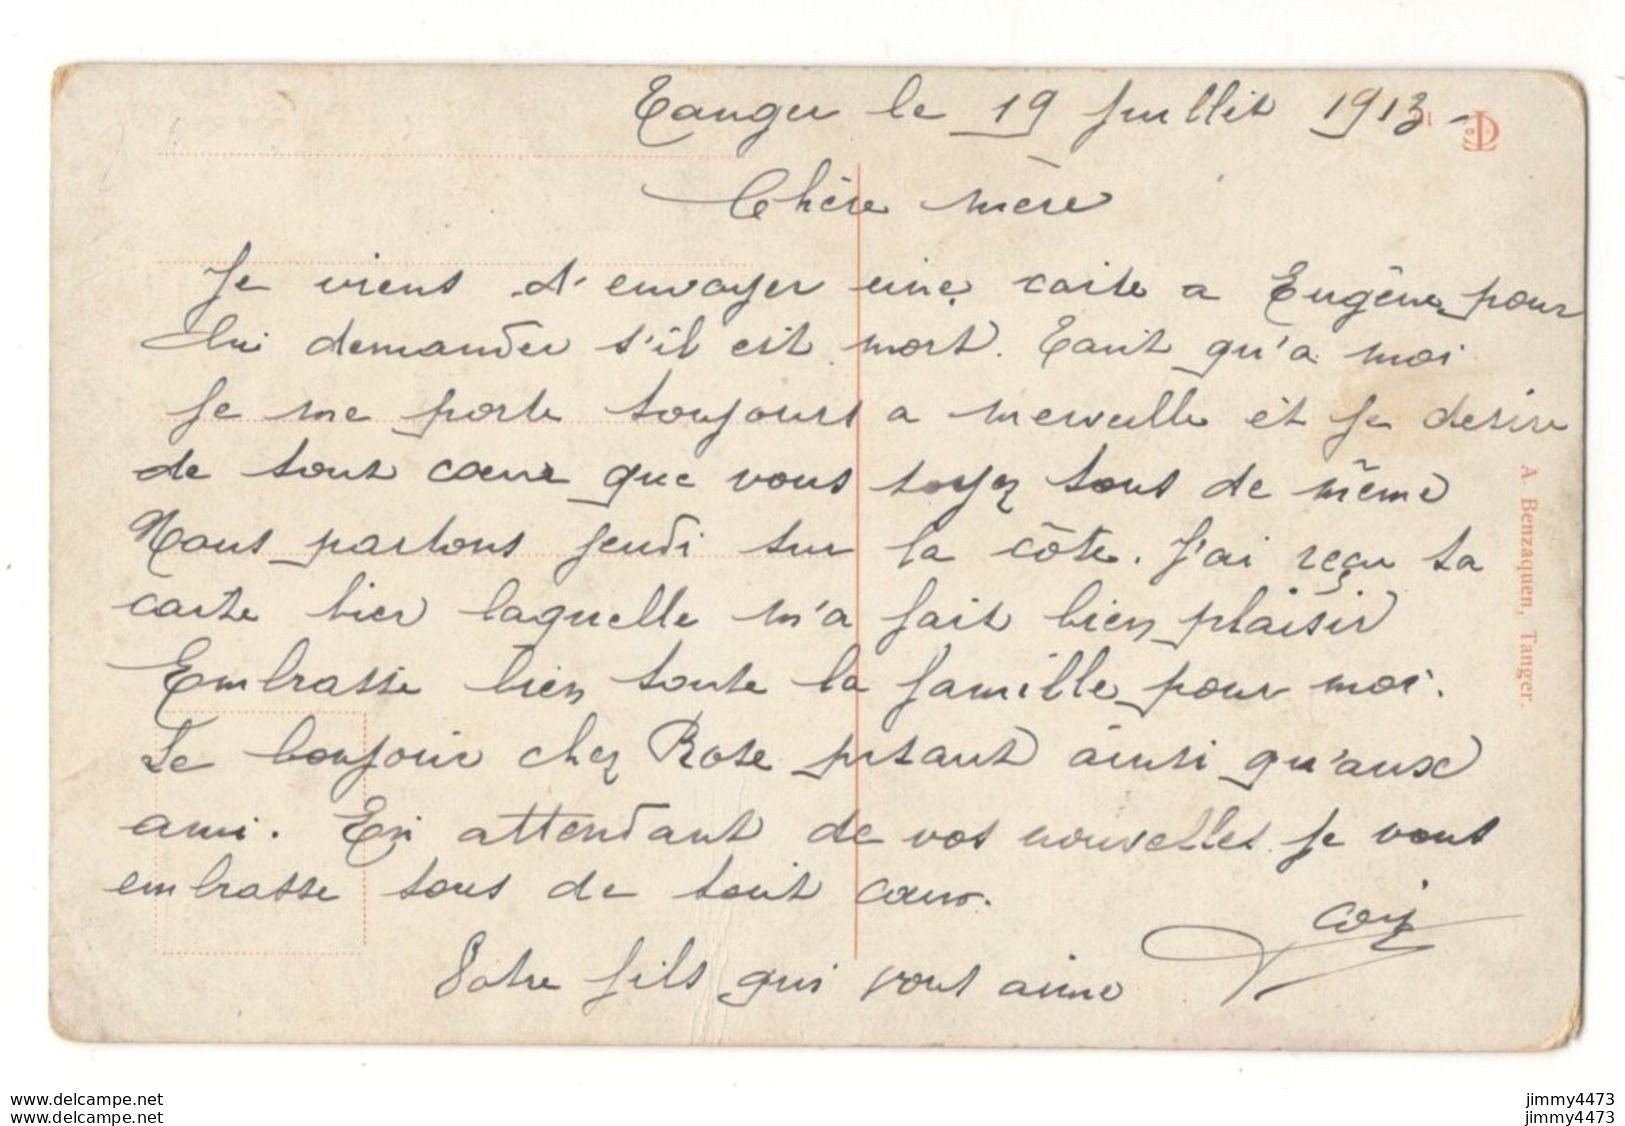 Tanger le 19 Juillet 1913 -
Chère mère
Je viens d'envoyer une carte a Eugène pour
lui demander s'il est mort. Tant qu'a moi
je me porte toujours a merveille et je desire
de tout cœur que vous soyez tous de même
Nous partons jeudi sur la côte. J'ai reçu ta
carte hier laquelle m'a fait bien plaisir
Embrasse bien toute la famille pour moi.
Le bonjour chez Rose ainsi qu'aux
ami. En attendant de vos nouvelles je vous
embrasse tous de tout cœur.
Votre fils qui vous aime
A. Benzaquen, Tanger.
www.delcampe.net
www.delcampe.net
jimmy4473
jimmy4473